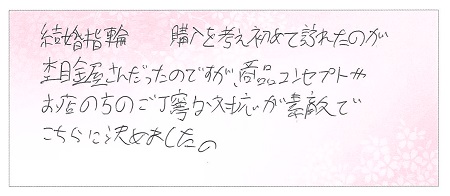 結婚指輪　購入を考え初めて訪れたのが
杢目金屋さんだったのですが、商品コンセプトや
お店のちのご丁寧な対応が素敵で
こちらに決めましたの